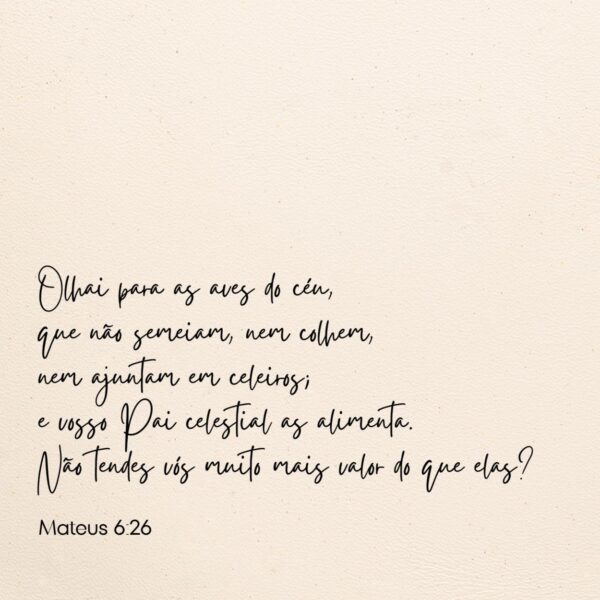 Olhai para as aves do céu,
que não semeiam, nem colhem,
nem ajuntam em celeiros;
e vosso Pai celestial as alimenta.
Não tendes vós muito mais valor do que elas?
Mateus 6:26